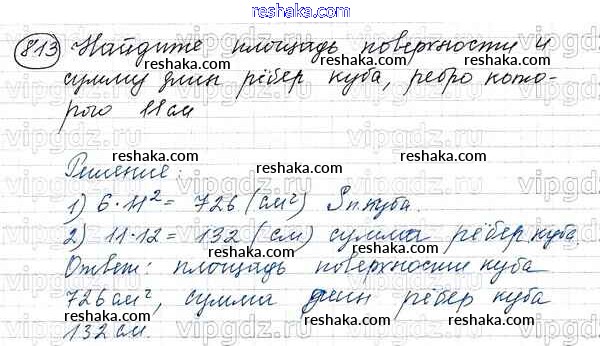 reshaka.com
813 Найдите площадь поверхности и
сумму длин рёбер куба, ребро кото-
рого 11 см
reshaka.com reshaka.com reshaka.com
Решение:
reshaka.com reshaka.com reshaka.com
1) 6·11² = 726 (см²) Sп куба.
2) 11·12 = 132 (см) сумма рёбер куба.
Ответ: площадь поверхности куба
726 см², сумма длин рёбер куба
132 см.
reshaka.com reshaka.com reshaka.com
vipgdz.ru vipgdz.ru vipgdz.ru